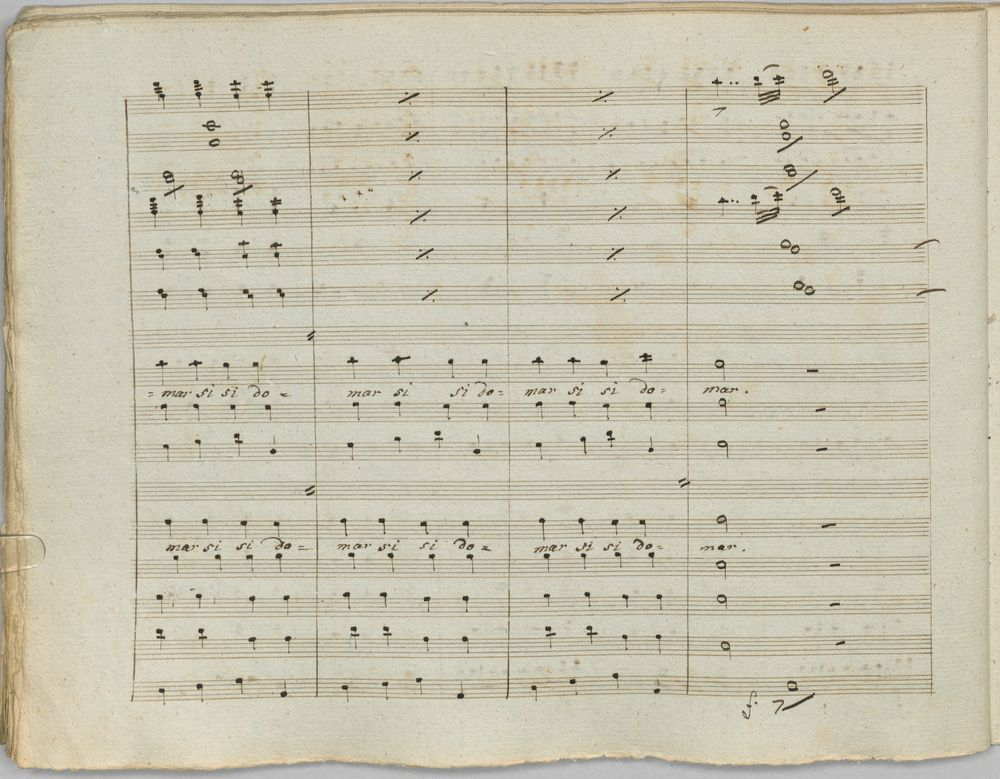 = mar si si do = mar si si do = mar si si do = mar.
mar si si do = mar si si do = mar si si do = mar.
f.